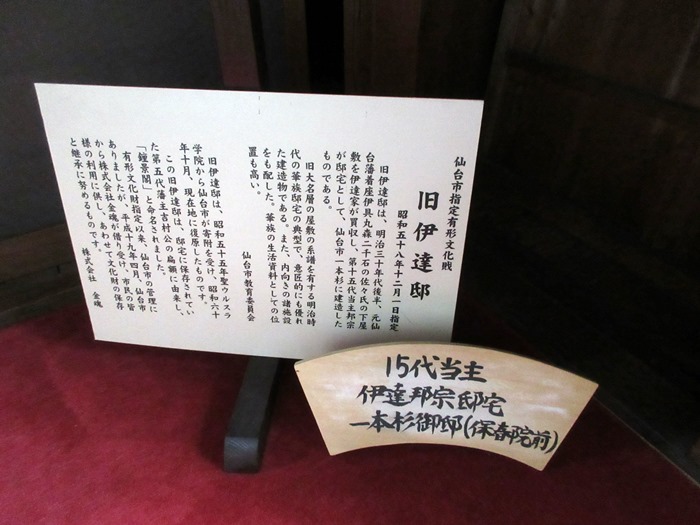 仙台市指定有形文化財
旧伊達邸
昭和五十八年十二月一日指定
旧伊達邸は、明治三十年代後半、元仙
台藩着座伊具丸森二千石の佐々氏の下屋
敷を伊達家が買収し、第十五代当主邦宗
が邸宅として、仙台市一本杉に建造した
ものである。
旧大名層の屋敷の系譜を有する明治時
代の華族邸宅の典型で、意匠的にも優れ
た建造物である。また、内向きの諸施設
をも配した。華族の生活資料としての位
置も高い。
仙台市教育委員会
旧伊達邸は、昭和五十五年聖ウルスラ
学院から仙台市が寄附を受け、昭和六十
年十月、現在地に復原したものです。
この旧伊達邸は、邸宅に保存されてい
た第五代藩主吉村公の扁額に由来し、
「鐘景閣」と命名されました。
有形文化財指定以来、仙台市の管理に
ありましたが、平成十九年四月、仙台市
から株式会社金魂が借り受け、市民の皆
様の利用に供し、あわせて文化財の保存
と継承に努めるものです。
株式会社 金魂
15代当主
伊達邦宗邸宅
一本杉御邸(保春院前)